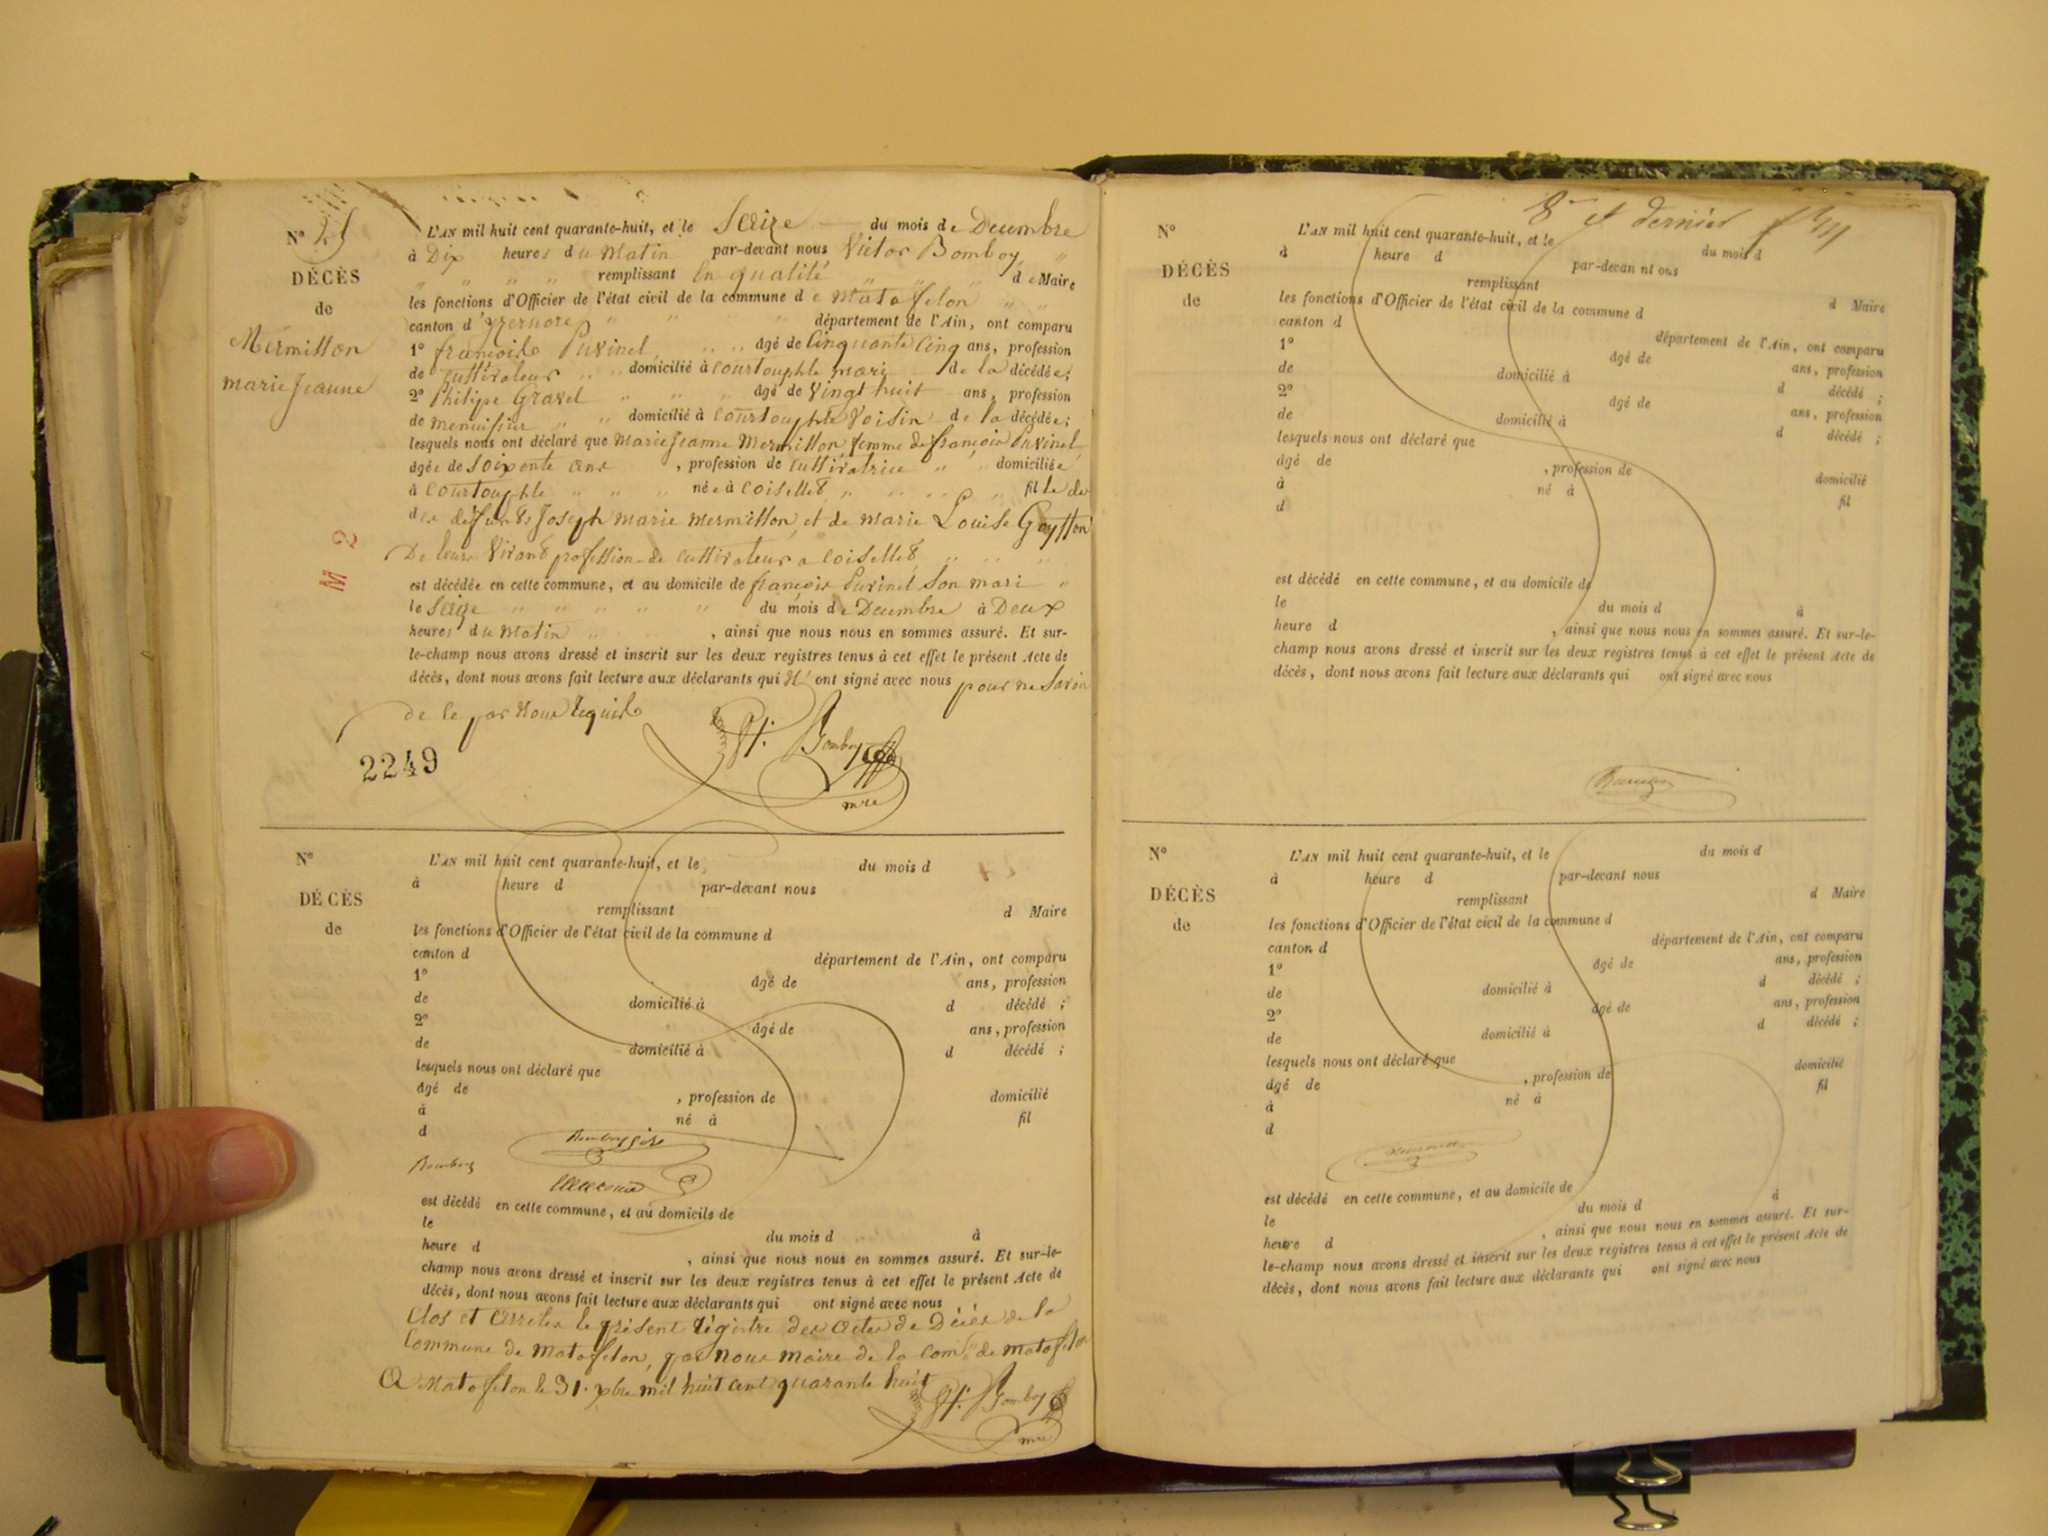 L'AN mil huit cent quarante-huit, et le Seize du mois de Decembre
à Dix heures du Matin par-devant nous Victor Bomboy
remplissant En qualité de Maire
les fonctions d'Officier de l'état civil de la commune de Matafelon
canton d'izernore département de l'Ain, ont comparu
1° françois Puvinel âgé de Cinquante Cinq ans, profession
de cultivateur domicilié à courtouphle mari de la décédée;
2° Philipe Gravel âgé de Vingt huit ans, profession
de menuisier domicilié à courtouphle Voisin de la décédée;
lesquels nous ont déclaré que Marie Jeanne Mermillon, femme de françois Puvinel
âgée de Soixente ans, profession de cultivatrice domiciliée
à Courtouphle née à Coisellet fille de
des defunts Joseph marie mermillon et de marie Louise
De leurs Vivant profession de cultivateur a coisellet
est décédée en cette commune, et au domicile de françois Puvinel Son mari
le Seize du mois de Decembre à Deux
heures du Matin, ainsi que nous nous en sommes assuré. Et sur-
le-champ nous avons dressé et inscrit sur les deux registres tenus à cet effet le présent Acte de
décès, dont nous avons fait lecture aux déclarants qui n' ont signé avec nous pour ne Savoir
de ce par Nous requis
Bomboy
mre
2249
N°
DÉCÈS
de
Mermillon
marie Jeanne
M 2
N°
DÉCÈS
de
L'AN mil huit cent quarante-huit, et le du mois d
à heure d par-devant nous
remplissant d Maire
les fonctions d'Officier de l'état civil de la commune d
canton d département de l'Ain, ont comparu
1° âgé de ans, profession
de domicilié à d décédé ;
2° âgé de ans, profession
de domicilié à d décédé ;
lesquels nous ont déclaré que
âgé de , profession de domicilié
à né à fil
d
Bomboy
est décédé en cette commune, et au domicile de
le du mois d à
heure d , ainsi que nous nous en sommes assuré. Et sur-le-
champ nous avons dressé et inscrit sur les deux registres tenus à cet effet le présent Acte de
décès, dont nous avons fait lecture aux déclarants qui ont signé avec nous
Clos et Arreter le présent régistre des actes de Décès de la
Commune de Matafelon, par nous maire de la Com.e de matafelon
A Matafelon le 31 xbre mil huit cent quarante huit
Bomboy
mre
8e et dernier
N°
DÉCÈS
de
L'AN mil huit cent quarante-huit, et le du mois d
à heure d par-devan nt ous
remplissant d Maire
les fonctions d'Officier de l'état civil de la commune d
canton d département de l'Ain, ont comparu
1° âgé de ans, profession
de domicilié à d décédé ;
2° âgé de ans, profession
de domicilié à d décédé ;
lesquels nous ont déclaré que
âgé de , profession de domicilié
à né à fil
d
est décédé en cette commune, et au domicile de
le du mois d à
heure d , ainsi que nous nous en sommes assuré. Et sur-le-
champ nous avons dressé et inscrit sur les deux registres tenus à cet effet le présent Acte de
décès, dont nous avons fait lecture aux déclarants qui ont signé avec nous
N°
DÉCÈS
de
L'AN mil huit cent quarante-huit, et le du mois d
à heure d par-devant nous
remplissant d Maire
les fonctions d'Officier de l'état civil de la commune d
canton d département de l'Ain, ont comparu
1° âgé de ans, profession
de domicilié à d décédé ;
2° âgé de ans, profession
de domicilié à d décédé ;
lesquels nous ont déclaré que
âgé de , profession de domicilié
à né à fil
d
est décédé en cette commune, et au domicile de
le du mois d à
heure d , ainsi que nous nous en sommes assuré. Et sur-
le-champ nous avons dressé et inscrit sur les deux registres tenus à cet effet le présent Acte de
décès, dont nous avons fait lecture aux déclarants qui ont signé avec nous